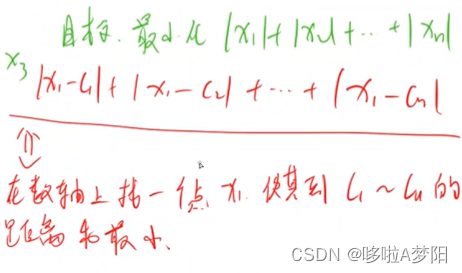 目标: 最小化 |x₁|+|x₂|+…+|xₙ|
x₃
|x₁-C₁|+|x₁-C₂|+…+|x₁-Cₙ|
⇓
在数轴上找一个点 x₁ 使其到 C₁~Cₙ 的
距离和最小.
CSDN @哆啦A梦阳